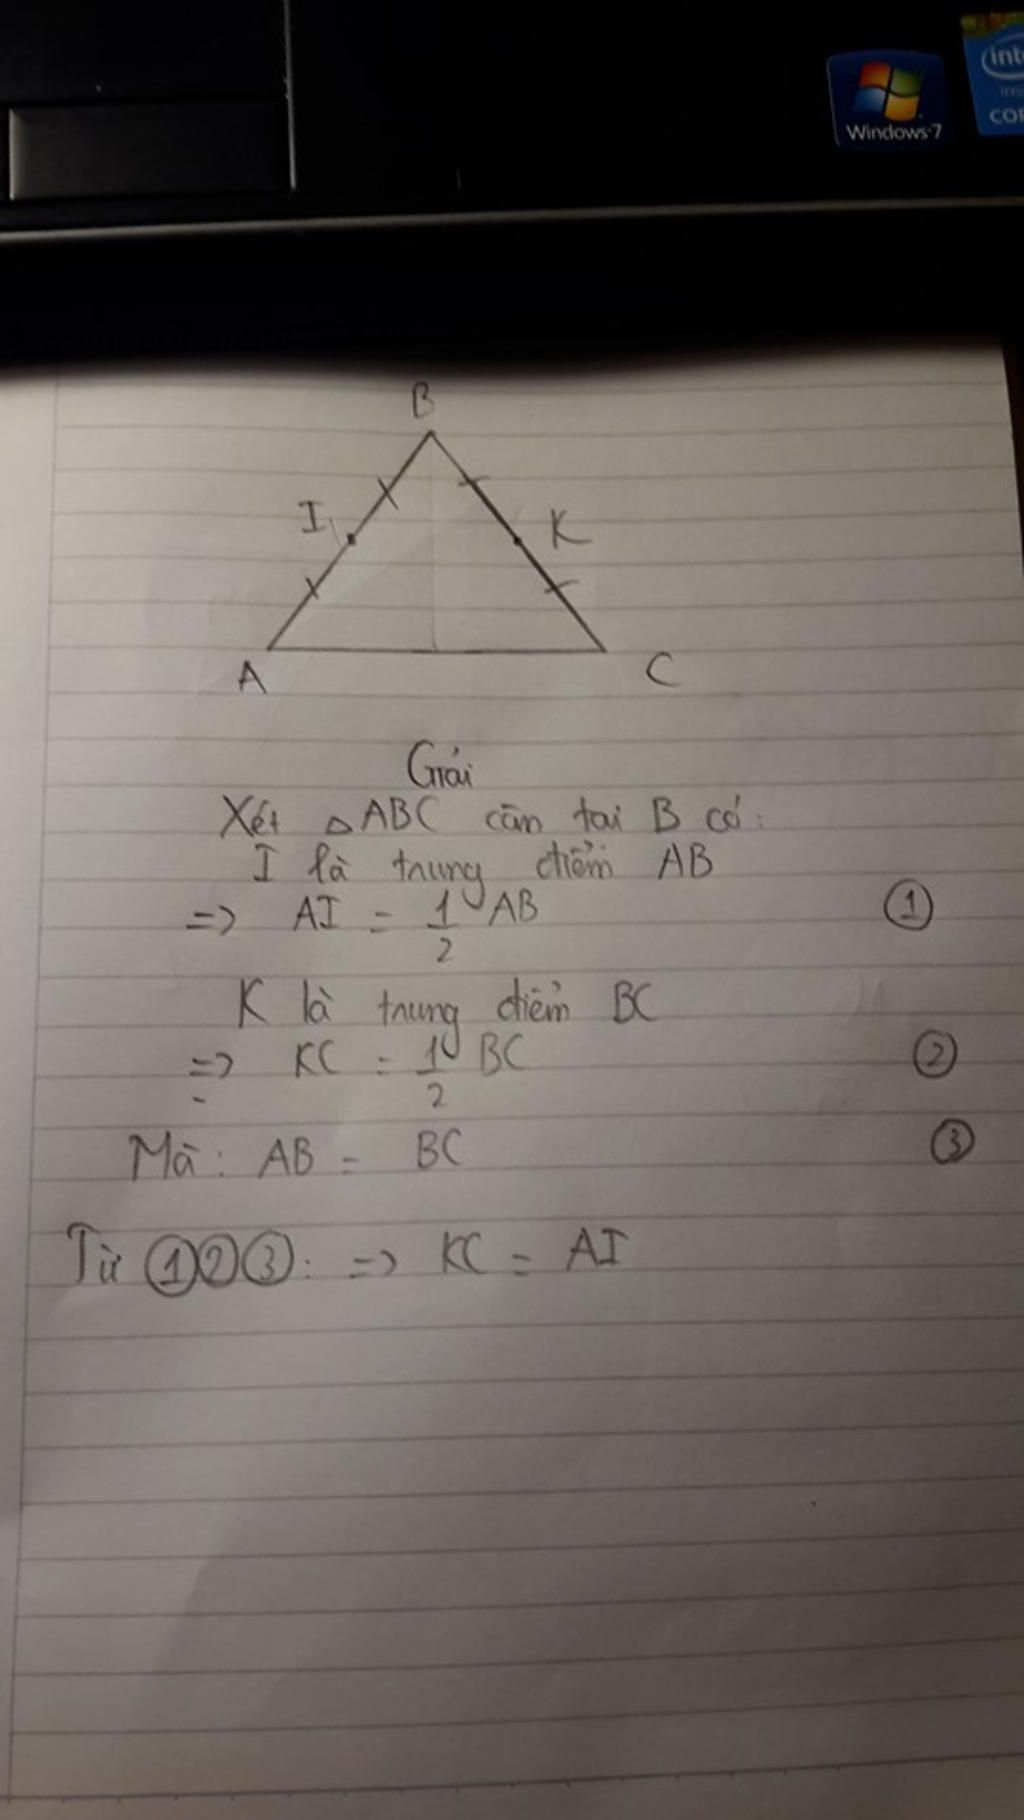 Windows 7
inte
ins
COR
B
I
K
A
C
Giải
Xét △ABC cân tại B có:
I là trung điểm AB
=> AI = 1/2 AB ①
K là trung điểm BC
=> KC = 1/2 BC ②
Mà: AB = BC ③
Từ ①②③: => KC = AI